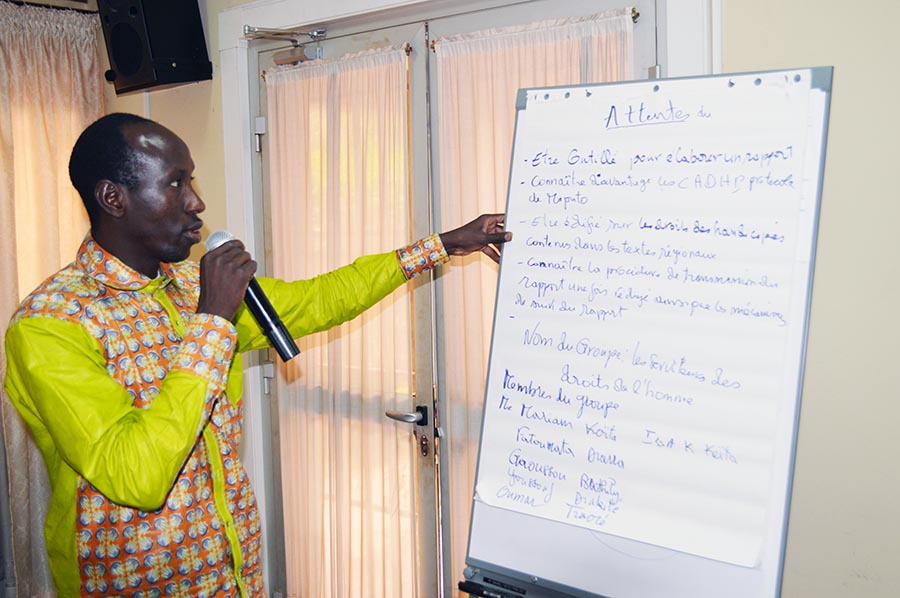 Attentes du
- Etre Outillé pour elaborer un rapport
- Connaître d'avantage les CADHP protocole
de Maputo
- Etre édifié sur les droits des handicapés
contenus dans les textes régionaux
- Connaître la procédure de transmission du
rapport une fois rédigé ainsi que les mécanismes
de suivi du rapport
-
Nom du Groupe : les Serviteurs des
droits de l'homme
Membres du groupe
Me Mariam Koita Issa K Keita
Fatoumata Diarra
Gaoussou
Youssouf Diakité
Oumar Traoré